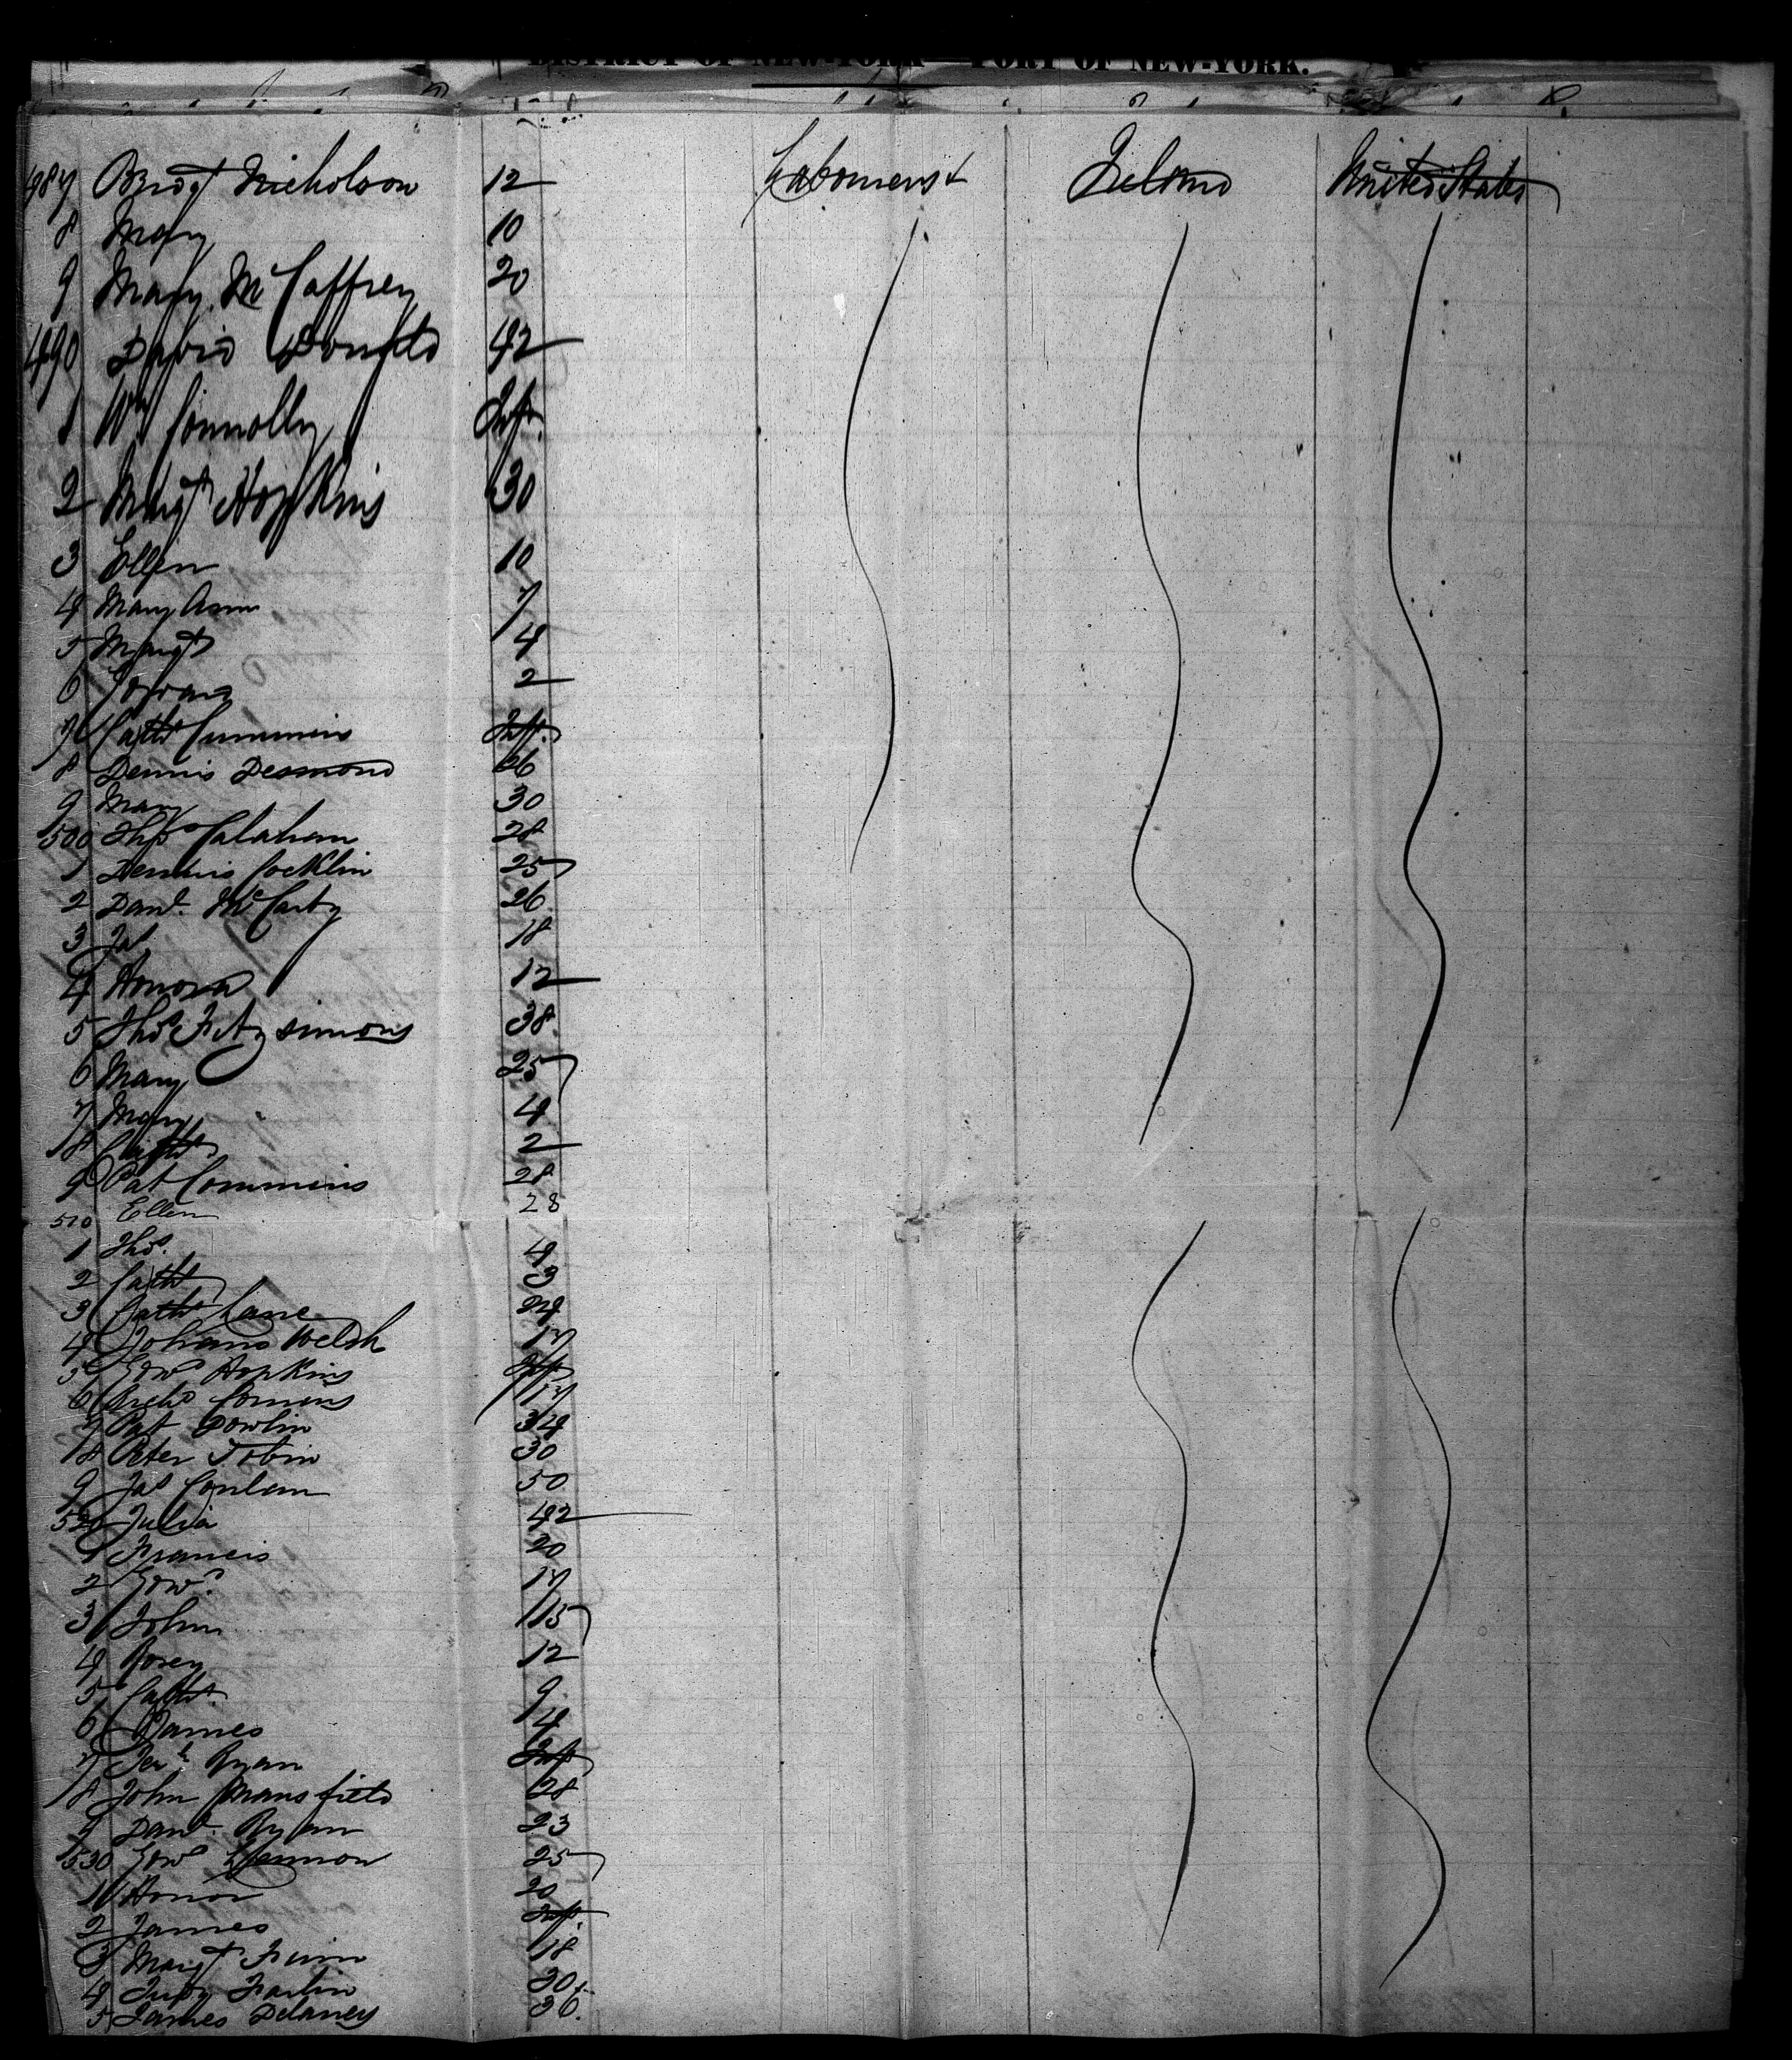 DISTRICT OF NEW-YORK—PORT OF NEW-YORK.
487 Bridgt Nicholson 12 Ireland United States
8 Mary 10
9 Mary McCaffrey 20
490 David 42
1 Wm Connolly Inft.
2 Margt Hopkins 30
3 Ellen 10
4 Mary Ann 7
5 Margt 4
6 2
7 Cathe Cummins Inft.
8 Dennis Desmond 26
9 Mary 30
500 Thos Calahan 28
1 Dennis Cocklin 25
2 Danl. McCarty 26
3 Jas 18
4 Honora 12
5 Thos Fitzsimons 38
6 Mary 25
7 Mary 4
8 Cathe 2
9 Pat Commins 28
510 Ellen 28
1 Thos. 4
2 Cathe 3
3 Cathe Lane 24
4 Johana Welsh 17
5 Edwd Hopkins Inft
6 Richd 17
7 Pat Dowlin 34
8 Peter Tobin 30
9 Jas Conlan 50
520 Julia 42
1 Francis 20
2 Edwd. 17
3 John 15
4 Rosey 12
5 Cathe. 9
6 James 4
7 Ryan Inft
8 John Mansfield 28
9 Danl. Ryan 23
530 Edwd Lennon 25
1 Honor 20
2 James Inft.
3 Margt Finn 18
4 Judy 30
5 James Delaney 36.